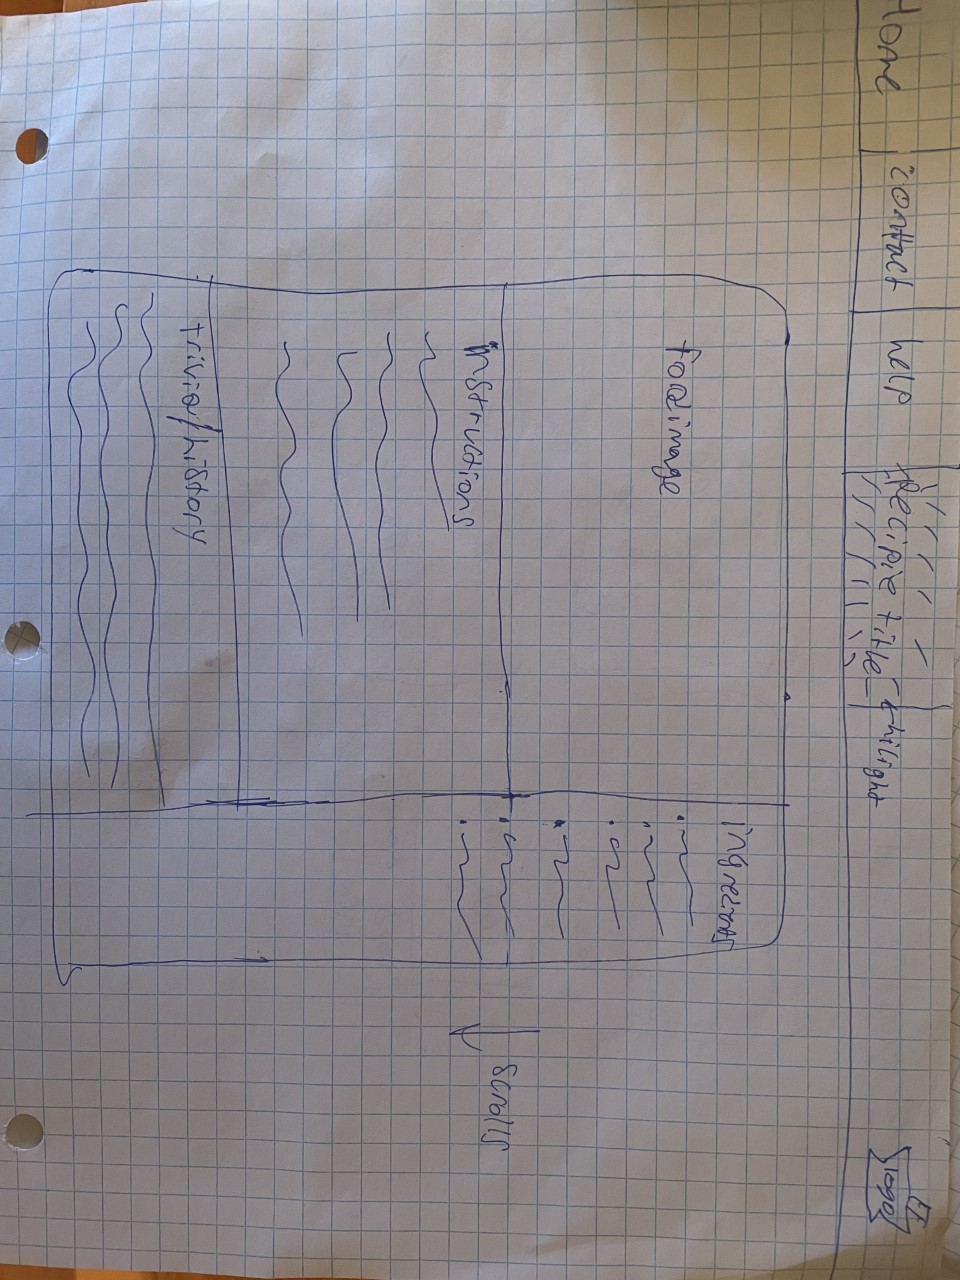 Home
contact
help
Recipie title
hilight
logo
food image
ingredients
instructions
trivia/history
scrolls